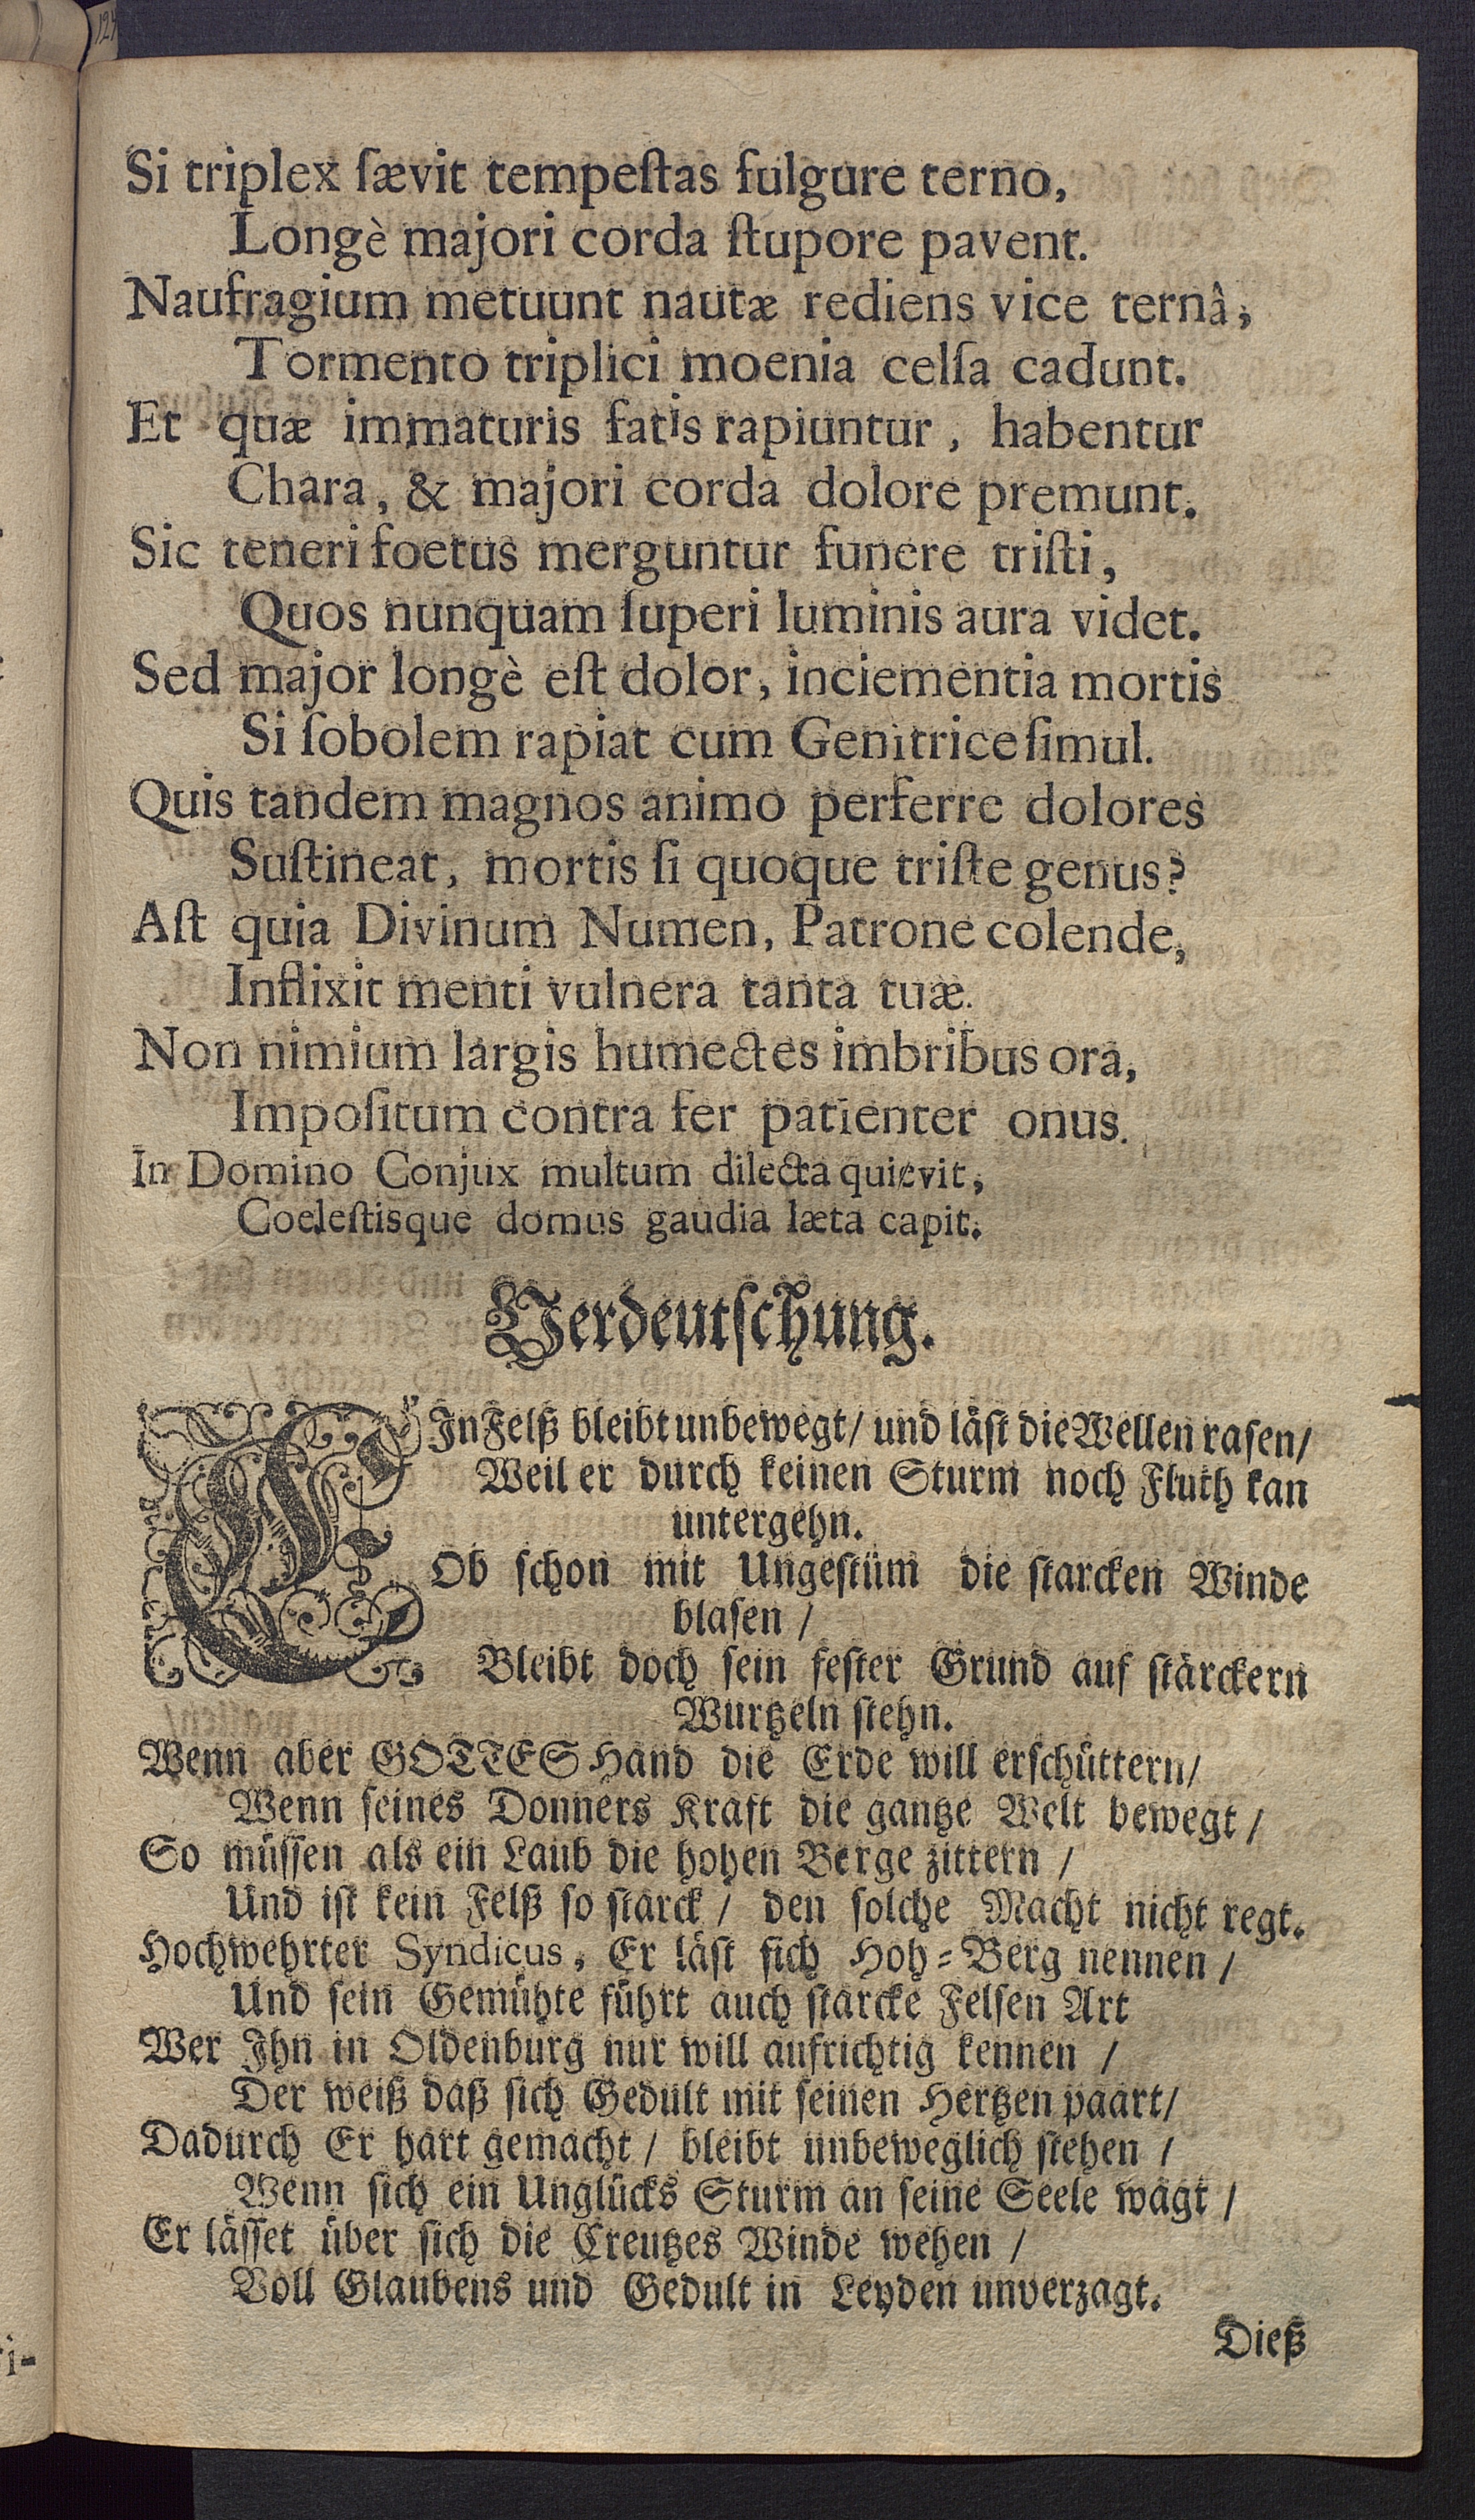 Si triplex ſævit tempeſtas fulgure terno,
Longè majori corda ſtupore pavent.
Naufragium metuunt nautæ rediens vice ternâ;
Tormento triplici moenia celſa cadunt.
Et quæ immaturis fatis rapiuntur, habentur
Chara, & majori corda dolore premunt.
Sic teneri foetus merguntur funere triſti,
Quos nunquam ſuperi luminis aura videt.
Sed major longè eſt dolor, inciementia mortis
Si ſobolem rapiat cum Genitrice ſimul.
Quis tandem magnos animo perferre dolores
Suſtineat, mortis ſi quoque triſte genus?
Aſt quia Divinum Numen, Patrone colende,
Inflixit menti vulnera tanta tuæ.
Non nimium largis humectes imbribus ora,
Impoſitum contra fer patienter onus.
In Domino Conjux multum dilecta quievit,
Coeleſtisque domus gaudia læta capit.
Verdeutſchung.
EJn Felß bleibt unbewegt/ und läſt die Wellen raſen/
Weil er durch keinen Sturm noch Fluth kan
untergehn.
Ob ſchon mit Ungeſtüm die ſtarcken Winde
blaſen /
Bleibt doch ſein feſter Grund auf ſtärckern
Wurtzeln ſtehn.
Wenn aber GOTTES Hand die Erde will erſchüttern/
Wenn ſeines Donners Kraft die gantze Welt bewegt /
So müſſen als ein Laub die hohen Berge zittern /
Und iſt kein Felß ſo ſtarck / den ſolche Macht nicht regt.
Hochwehrter Syndicus, Er läſt ſich Hoh-Berg nennen /
Und ſein Gemühte führt auch ſtarcke Felſen Art
Wer Jhn in Oldenburg nur will aufrichtig kennen /
Der weiß daß ſich Gedult mit ſeinen Hertzen paart/
Dadurch Er hart gemacht / bleibt unbeweglich ſtehen /
Wenn ſich ein Unglücks Sturm an ſeine Seele wagt /
Er läſſet über ſich die Creutzes Winde wehen /
Voll Glaubens und Gedult in Leyden unverzagt.
Dieß